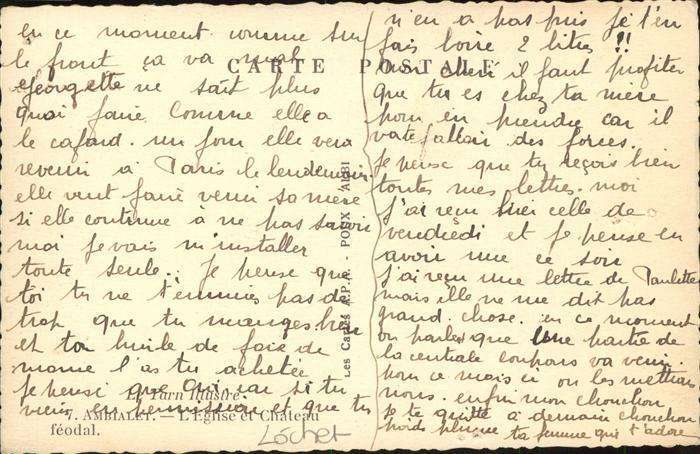 CARTE POSTALE
en ce moment comme sur
le front ça va mal
georgette ne sait plus
quoi faire comme elle a
le cafard. un jour elle vera
revenir à Paris le lendemain
elle veut faire venir sa mère
si elle continue à ne pas savoir
moi je vais m'installer
toute seule. je pense que
toi tu ne t'ennuies pas de
trop que tu manges bien
et ton huile de foie de
morue l'as tu achetée
je pense que oui car si tu
viens en permission et que tu
n'en a pas pris je t'en
fais boire 2 litres !!
mon cheri il faut profiter
que tu es chez ta mère
pour en prendre car il
va te falloir des forces.
je pense que tu reçois bien
toutes mes lettres. moi
j'ai reçu hier celle de
vendredi et je pense en
avoir une ce soir
j'ai reçu une lettre de Paulette
mais elle ne me dit pas
grand chose. en ce moment
on parle que une partie de
la centrale coupons va venir
pour ce mois ci où les mettrai
nous. enfin mon chouchou
je te quitte à demain chouchou
ta femme qui t'adore
Les Cartes A.P.A. - POUX - ALBI
Le Tarn Illustré
7. AMBIALET. — L'Eglise et Château
féodal.
Lochet